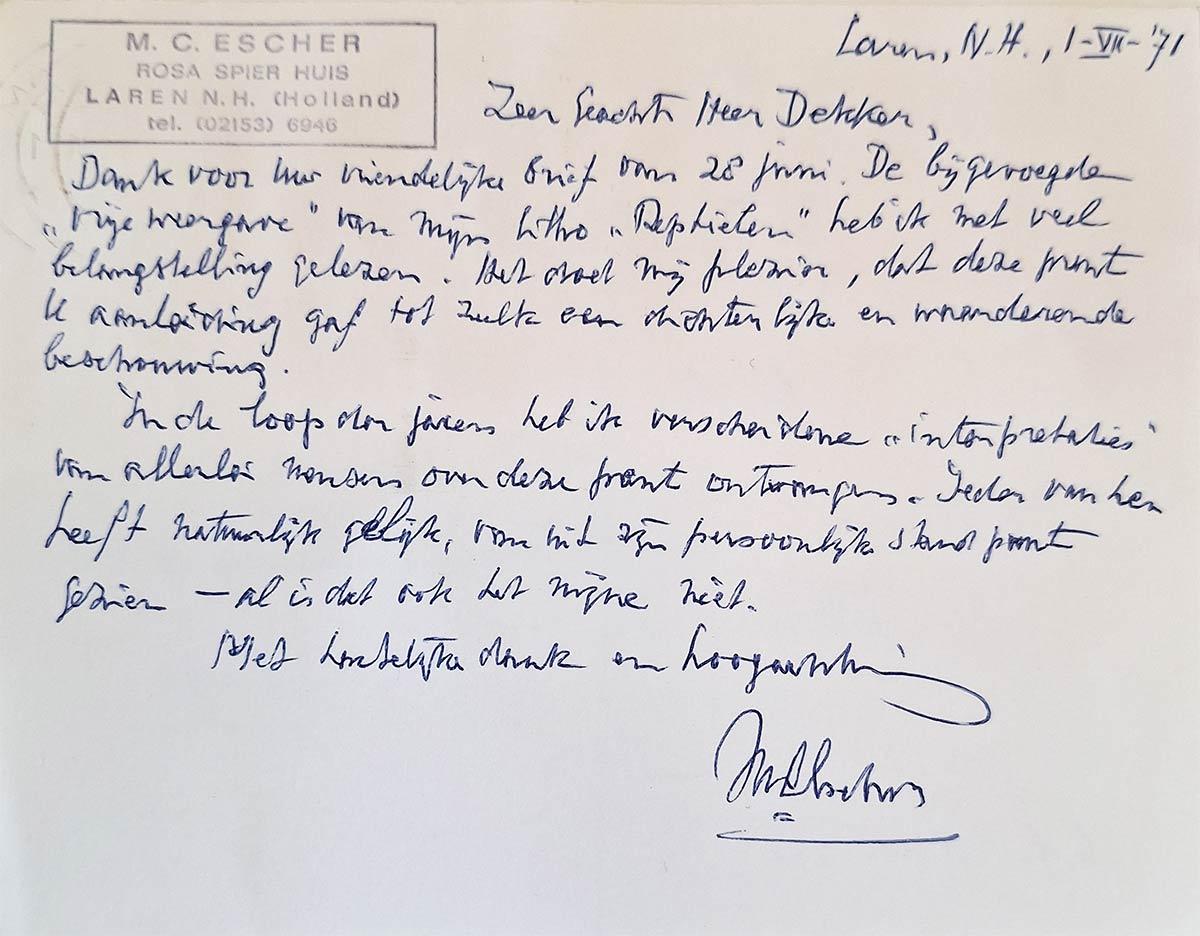 M. C. ESCHER
ROSA SPIER HUIS
LAREN N.H. (Holland)
tel. (02153) 6946
Laren, N.H., 1-VII-'71
Zeer Geachte Heer Dekker,
Dank voor Uw vriendelijke brief van 28 juni. De bijgevoegde
„vrije weergave” van mijn litho „Reptielen” heb ik met veel
belangstelling gelezen. Het doet mij plezier, dat deze prent
U aanleiding gaf tot zulk een dichterlijke en waarderende
beschouwing.
In de loop der jaren heb ik verscheidene „interpretaties”
van allerlei mensen over deze prent ontvangen. Ieder van hen
heeft natuurlijk gelijk, van uit zijn persoonlijk standpunt
gezien — al is dat ook het mijne niet.
Met hartelijke dank en hoogachting
MCEscher